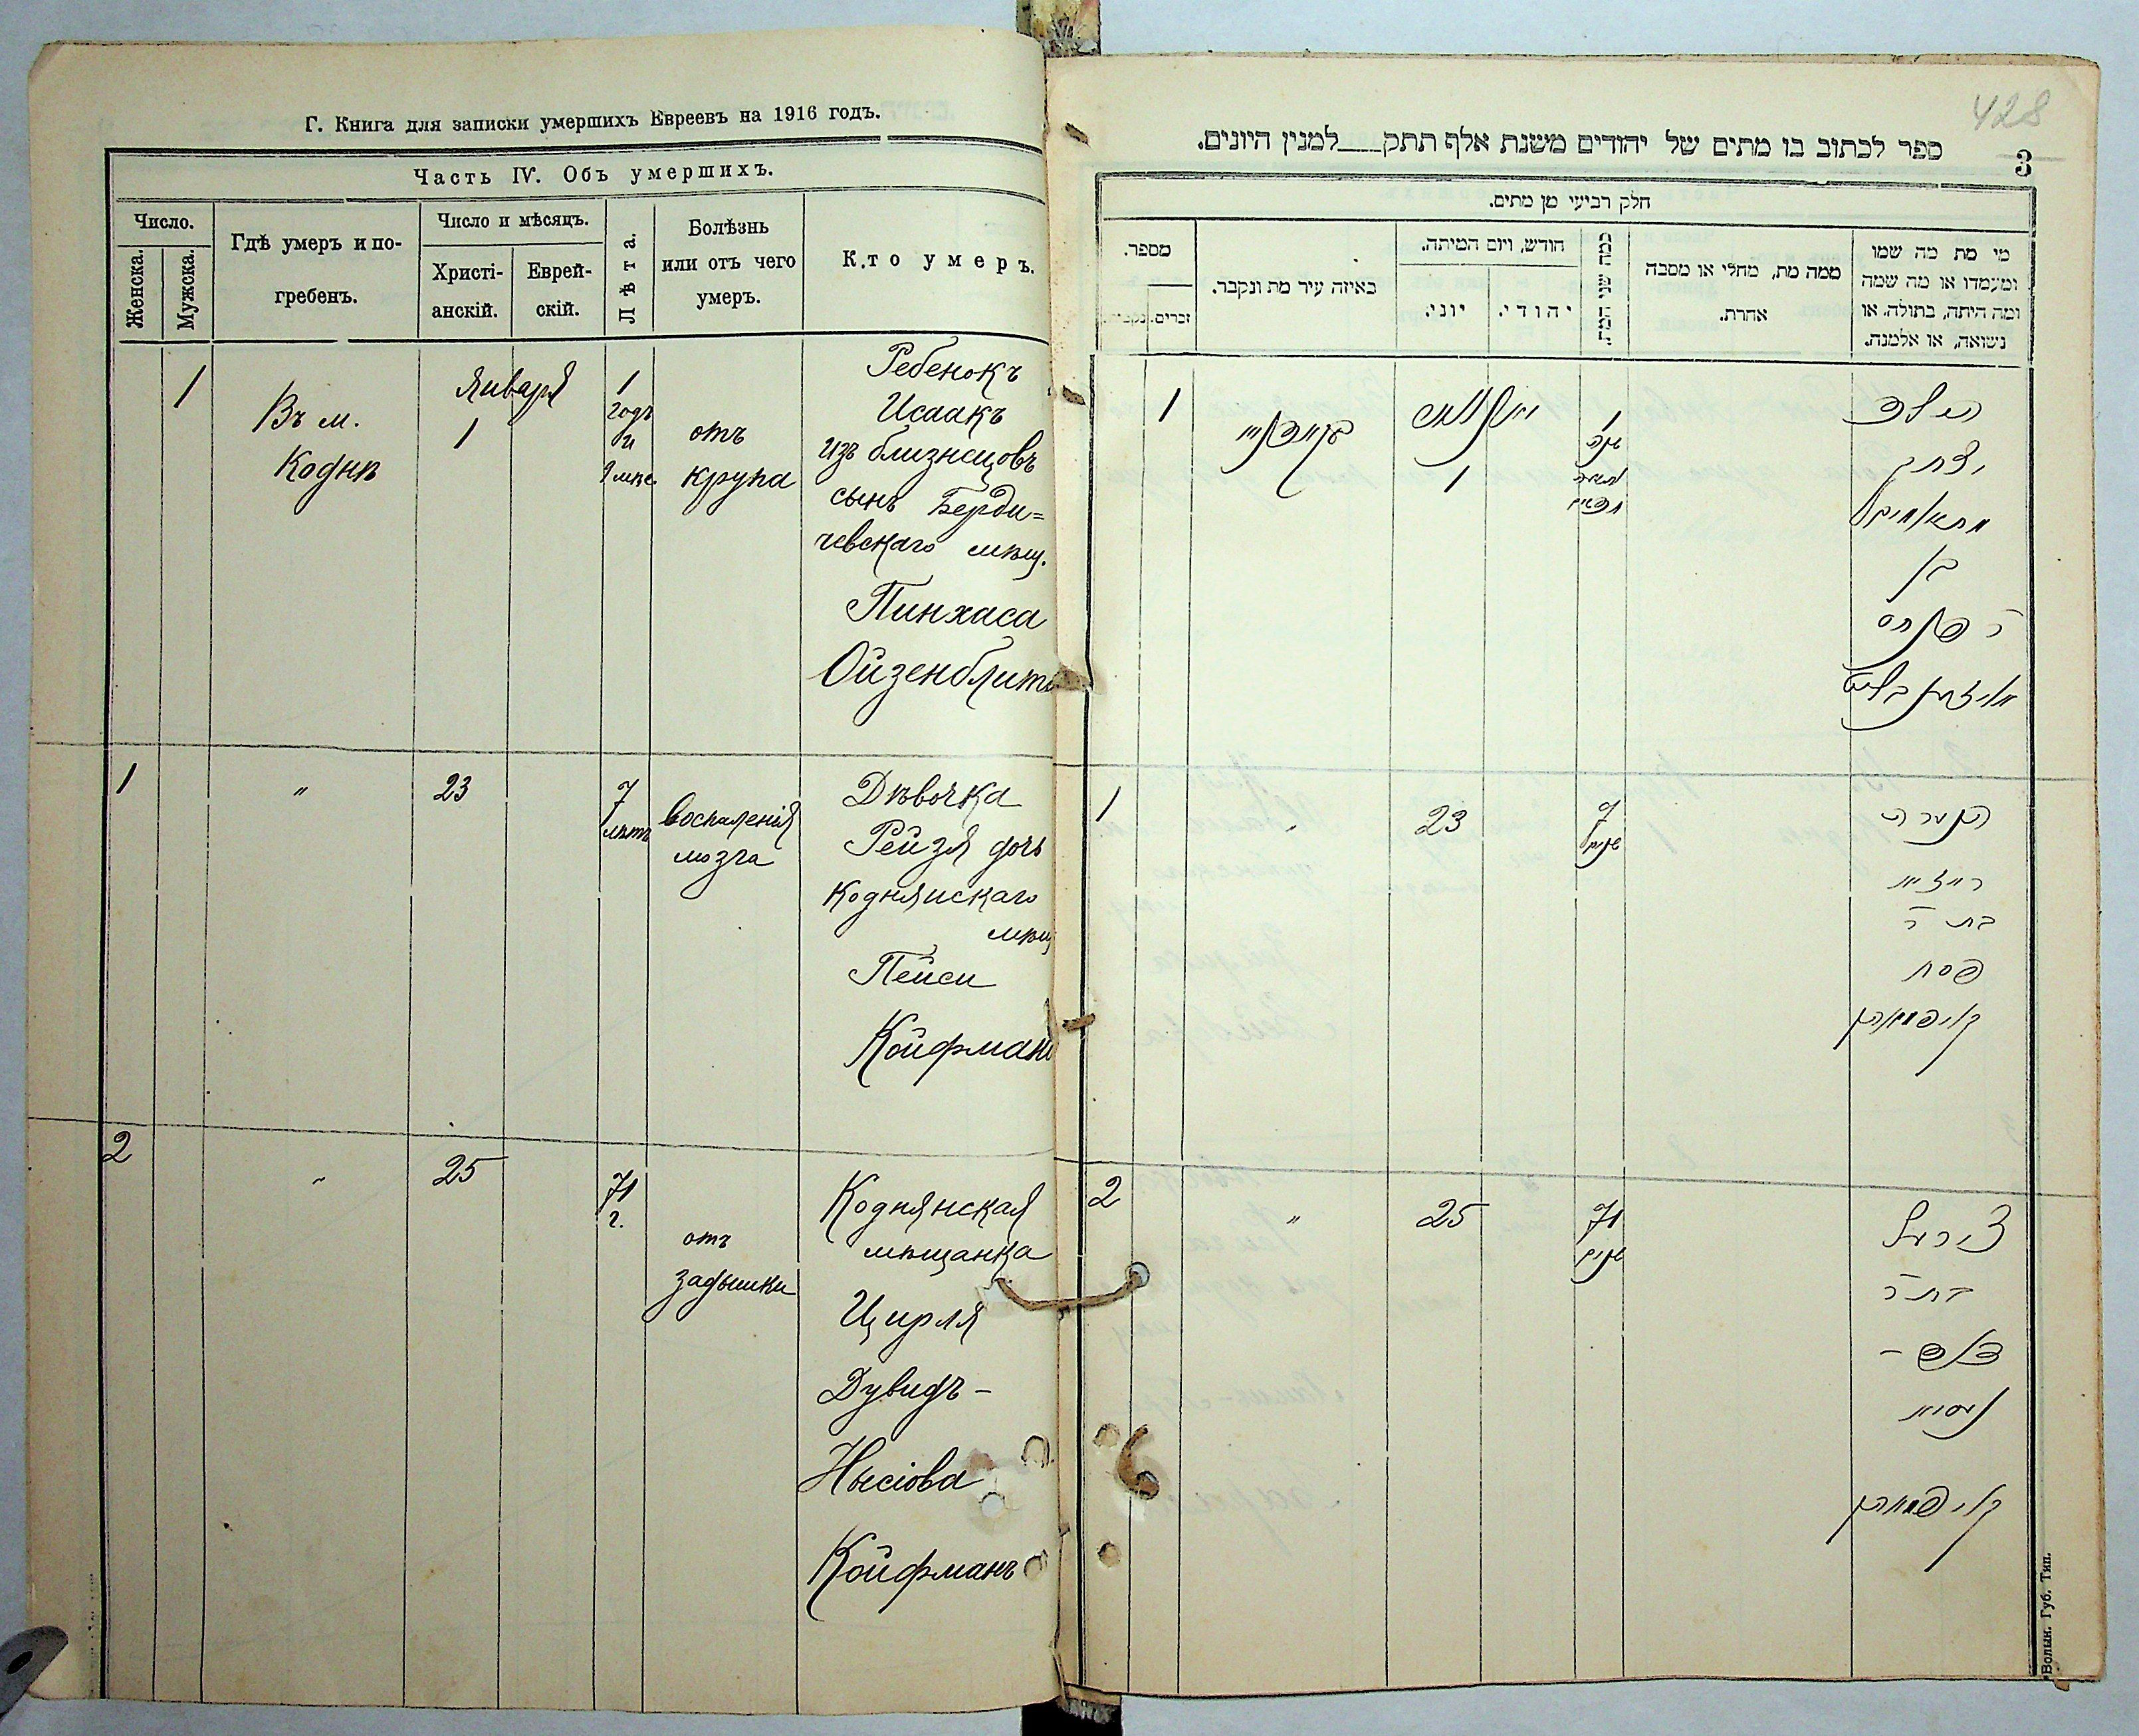 Г. Книга для записки умершихъ Евреевъ на 1916 годъ.
Часть IV. Объ умершихъ.
Число.
Женска.
Мужска.
Гдѣ умеръ и по-
гребенъ.
Число и мѣсяцъ.
Христі-
анскій.
Еврей-
скій.
Лѣта.
Болѣзнь
или отъ чего
умеръ.
Кто умеръ.
1
Въ м.
Кодни
Января
1
1
годъ
и
9 мѣс.
отъ
крупа
Ребенокъ
Исаакъ
изъ близнецовъ
сынъ Берди=
чевскаго мѣщ.
Пинхаса
Ойзенблитъ
1
"
23
7
лѣтъ
воспаленія
мозга
Дѣвочка
Рейзя дочь
Коднянскаго
мѣщ
Пейси
Койфманъ
2
"
25
71
г.
отъ
задышки
Коднянская
мѣщанка
Цирля
Дувидъ-
Нысіова
Койфманъ
428
3
ספר לכתוב בו מתים של יהודים משנת אלף תתק___למנין היונים.
חלק רביעי מן מתים.
מספר.
זכרים.
באיזה עיר מת ונקבר.
חודש, ויום המיתה.
יוני.
יהודי.
כמה שני המת.
ממה מת, מחלי או מסבה
אחרת.
מי מת מה שמו
ומעמדו או מה שמה
ומה היתה, בתולה, או
נשואה, או אלמנה.
1
1
1
שנה
הילד
יצחק
בן
ר פנחס
אויזענבליט
1
"
23
7
שנים
הנערה
רייזיא
בת ר
פסח
קויפמאן
2
"
25
71
שנים
צירל
בת ר
ניסיא
קויפמאן
Волын. Губ. Тип.